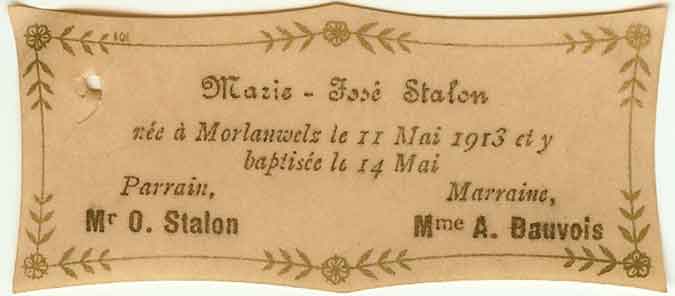 Marie - José Stalon
née à Morlanwelz le 11 Mai 1913 et y
baptisée le 14 Mai
Parrain, Marraine,
Mr O. Stalon Mme A. Bauvois